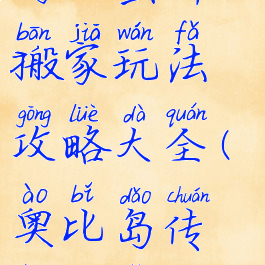 bān jiā wán fǎ
搬家玩法
gōng lüè dà quán
攻略大全(
ào bǐ dǎo chuán
奥比岛传